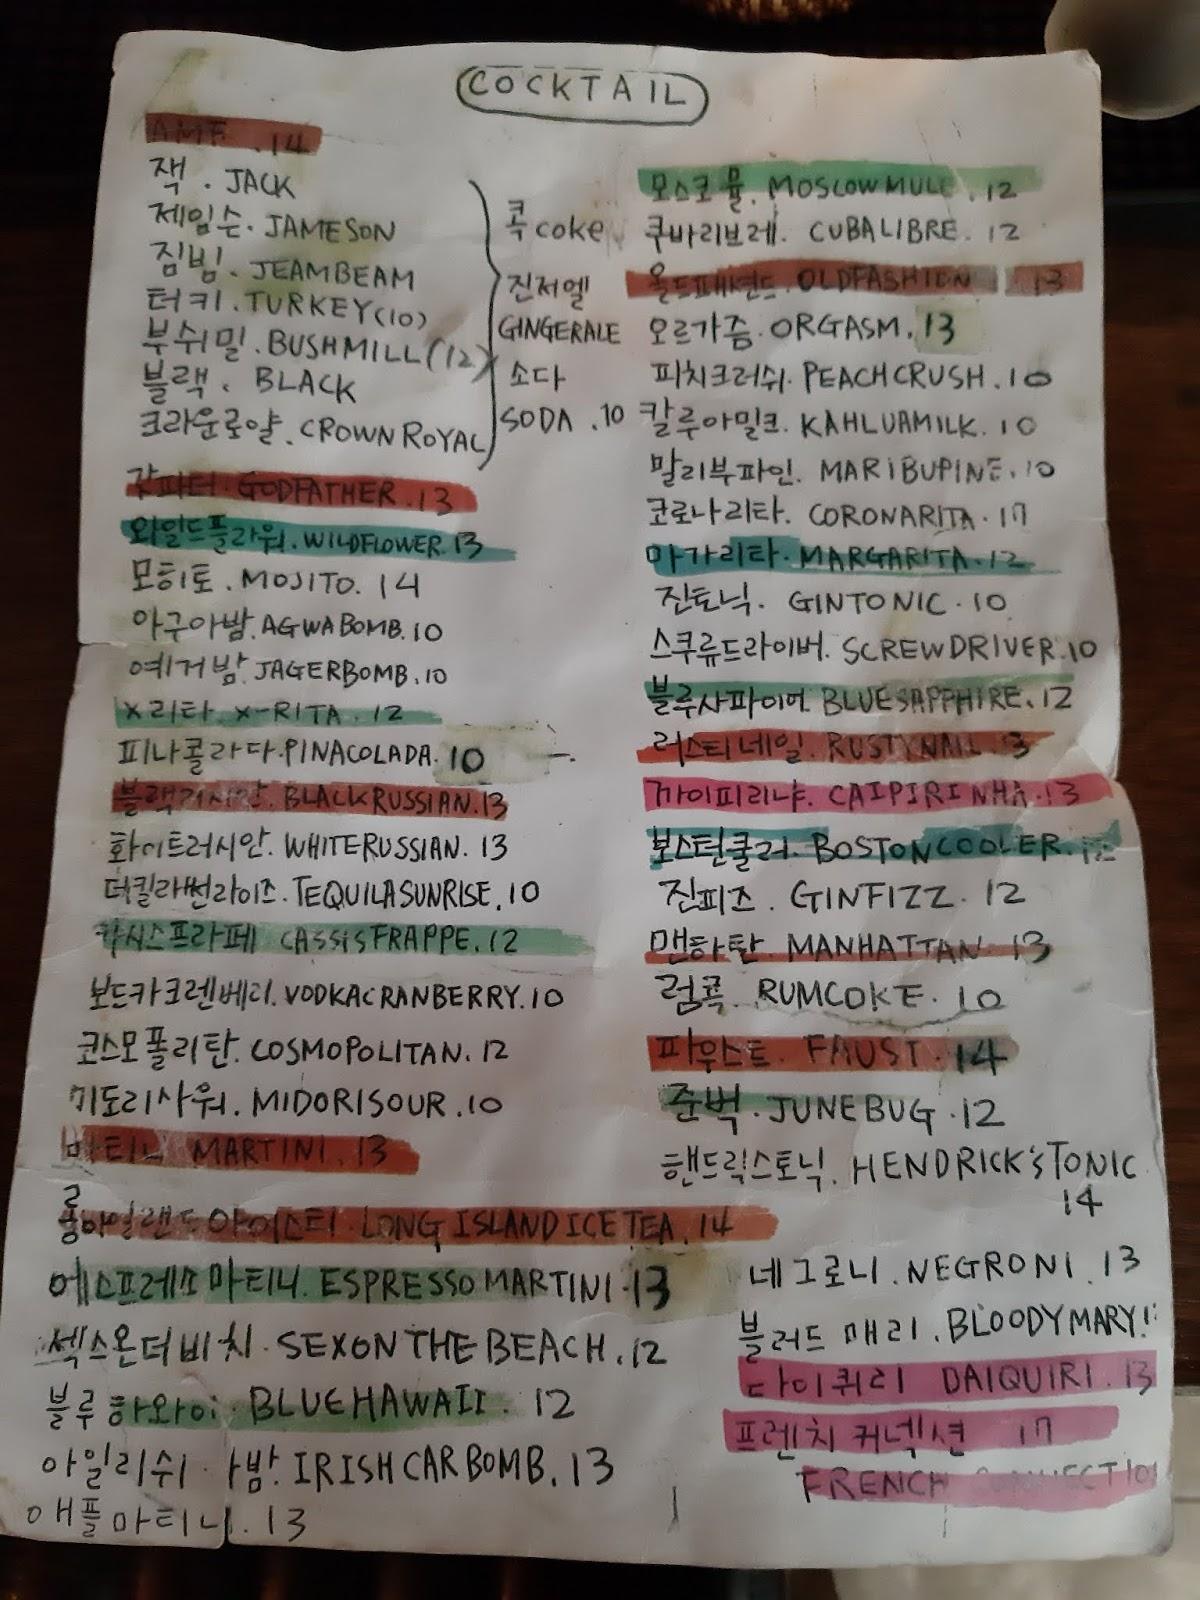 COCKTAIL
AMF .14
잭 . JACK
제임슨. JAMESON
짐빔. JEAMBEAM
터키. TURKEY(10)
부쉬밀. BUSHMILL(12)
블랙. BLACK
크라운로얄. CROWN ROYAL
콕 coke
진저엘
GINGERALE
소다
SODA .10
갓파더. GODFATHER .13
와일드플라워. WILDFLOWER. 13
모히토. MOJITO. 14
아구아밤. AGWABOMB. 10
예거밤. JAGERBOMB. 10
X리타. X-RITA. 12
피나콜라다. PINACOLADA. 10
블랙러시안. BLACKRUSSIAN. 13
화이트러시안. WHITERUSSIAN. 13
더킬라썬라이즈. TEQUILASUNRISE. 10
카시스프라페 CASSISFRAPPE. 12
보드카크렌베리. VODKACRANBERRY. 10
코스모폴리탄. COSMOPOLITAN. 12
미도리사워. MIDORISOUR. 10
마티니 MARTINI. 13
롱아일랜드아이스티. LONG ISLAND ICE TEA. 14
에스프레소마티니. ESPRESSO MARTINI. 13
섹스온더비치. SEXONTHEBEACH. 12
블루하와이. BLUEHAWAII. 12
아일리쉬 밤. IRISHCARBOMB. 13
애플마티니. 13
모스코뮬. MOSLOWMULE. 12
쿠바리브레. CUBALIBRE. 12
올드패션드. OLDFASHION 13
오르가즘. ORGASM. 13
피치크러쉬. PEACHCRUSH. 10
칼루아밀크. KAHLUAMILK. 10
말리부파인. MARIBUPINE. 10
코로나리타. CORONARITA. 17
마가리타. MARGARITA. 12
진토닉. GINTONIC. 10
스쿠류드라이버. SCREWDRIVER. 10
블루사파이어. BLUESAPPHIRE. 12
러스티네일. RUSTYNAIL. 13
까이피리냐. CAIPIRINHA. 13
보스턴쿨러. BOSTONCOOLER. 12
진피즈. GINFIZZ. 12
맨하탄. MANHATTAN. 13
럼콕. RUMCOKE. 10
파우스트. FAUST. 14
준벅. JUNEBUG. 12
핸드릭스토닉. HENDRICK'S TONIC
14
네그로니. NEGRONI. 13
블러드매리. BLOODYMARY!
다이퀴리 DAIQUIRI. 13
프렌치커넥션 17
FRENCH CONNECTION